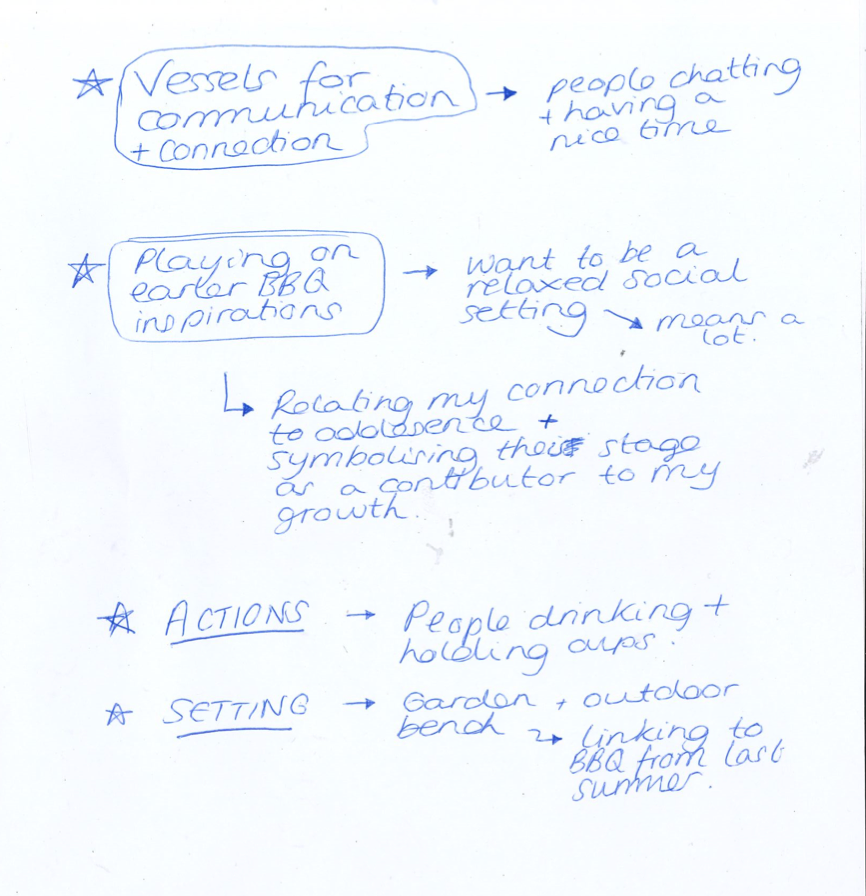 ☆ Vessels for
communication
+ connection
→ people chatting
+ having a
nice time
☆ Playing on
earler BBQ
inspirations
→ want to be a
relaxed social
setting → means a
lot.
↳ Relating my connection
to addlesence +
symbolising this stage
as a contributor to my
growth.
☆ ACTIONS → People drinking +
holding cups.
☆ SETTING → Garden + outdoor
bench → linking to
BBQ from last
summer.